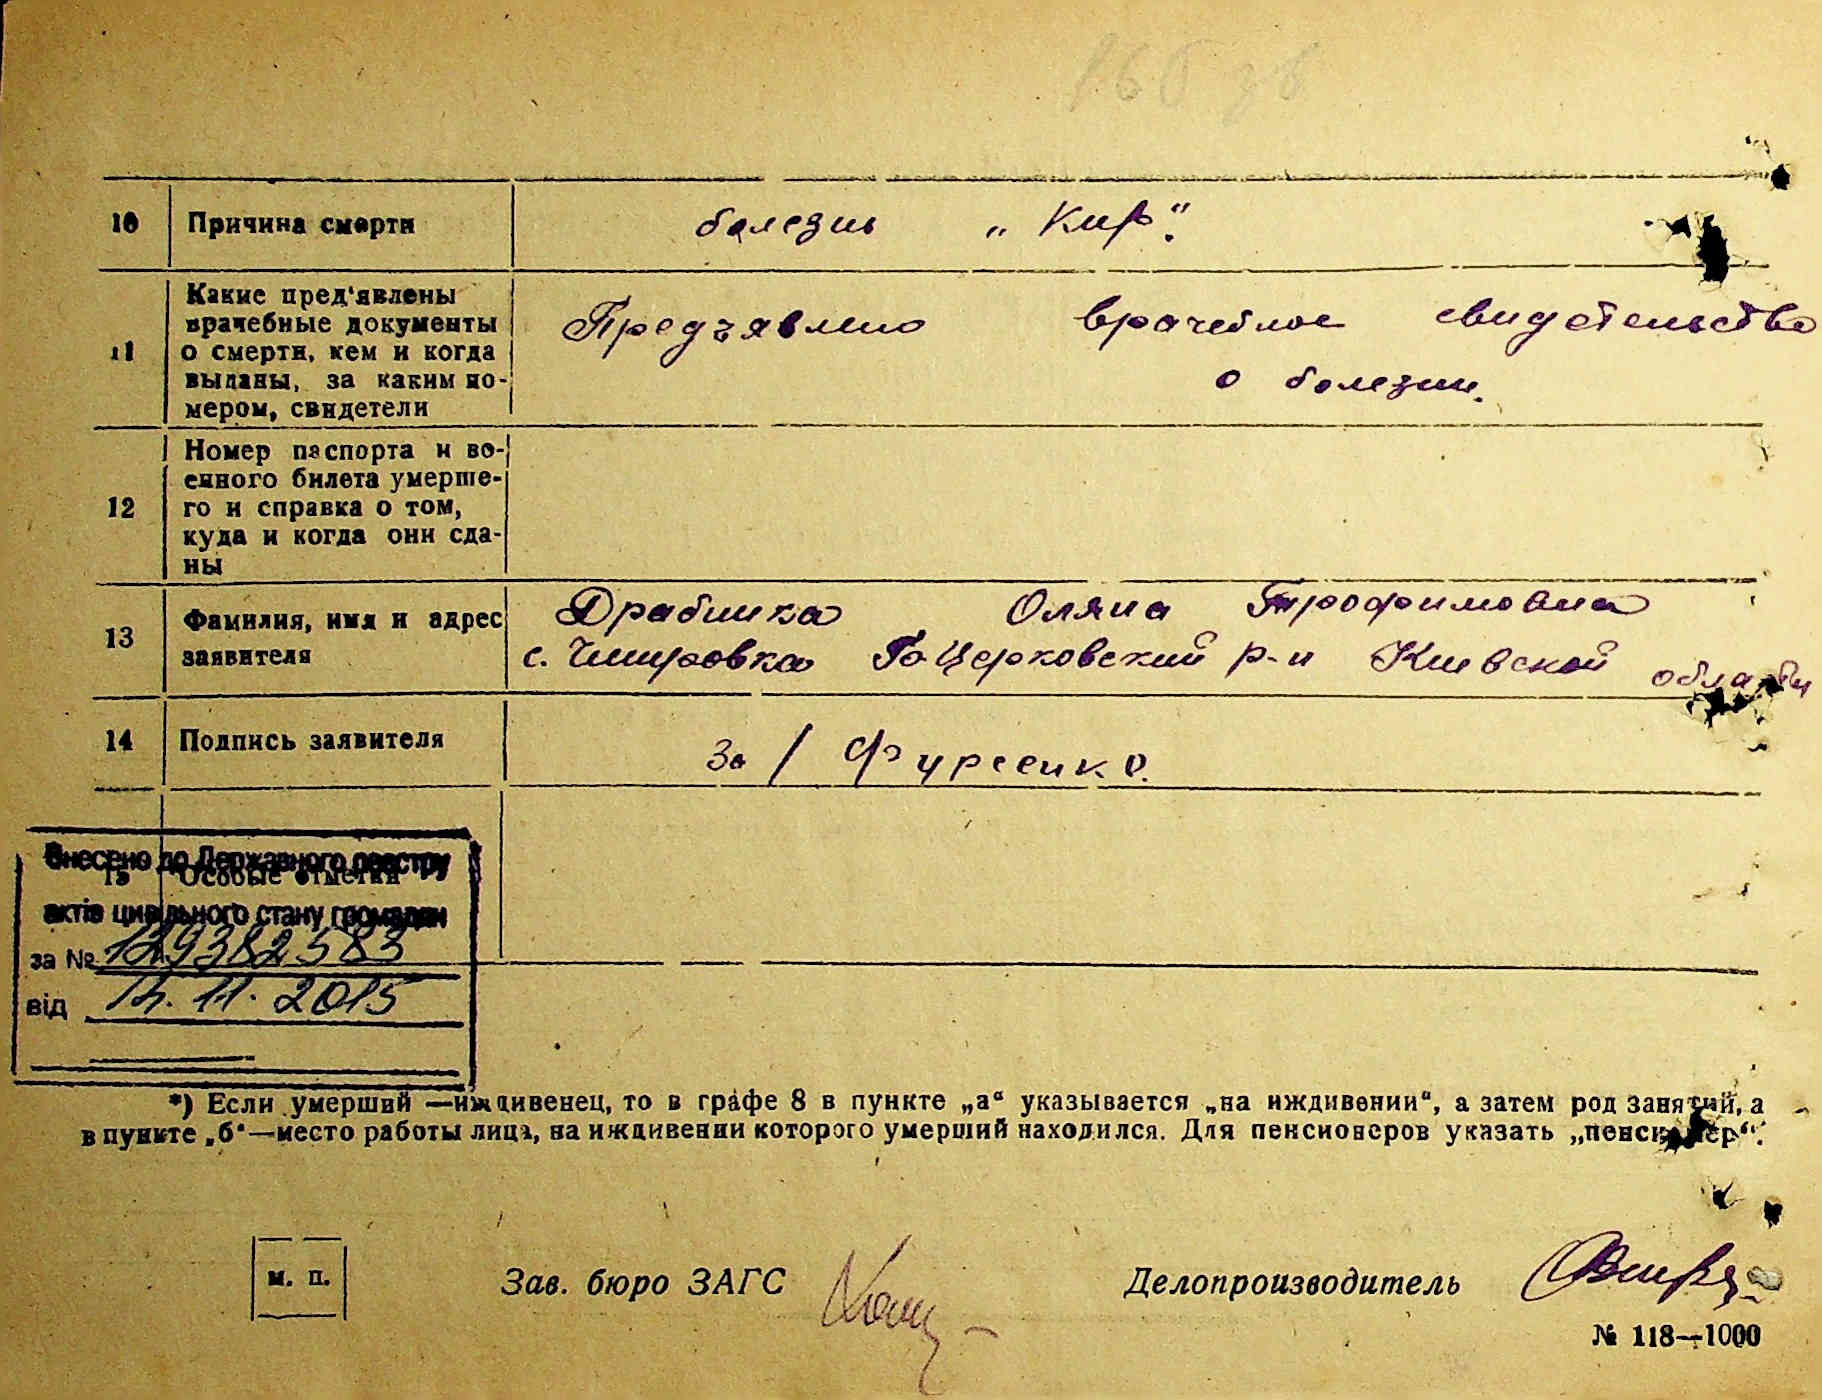 10 Причина смерти болезнь „Кир".
11 Какие пред'явлены
врачебные документы
о смерти, кем и когда
выданы, за каким но-
мером, свидетели
Предъявлено врачебное свидетельство
о болезни.
12 Номер паспорта и во-
енного билета умерше-
го и справка о том,
куда и когда они сда-
ны
13 Фамилия, имя и адрес
заявителя
Драбишка Оляна Трофимовна
с. Чмировка Б-Церковский р-н Киевской области
14 Подпись заявителя За / Фурсенко.
15 Особые отметки
Внесено до Державного реєстру
актів цивільного стану громадян
за № 129382583
від 14.11.2015
*) Если умерший —иждивенец, то в графе 8 в пункте „а“ указывается „на иждивении“, а затем род занятий, а
в пункте „б“—место работы лица, на иждивении которого умерший находился. Для пенсионеров указать „пенсионер“.
м. п. Зав. бюро ЗАГС Делопроизводитель
№ 118—1000